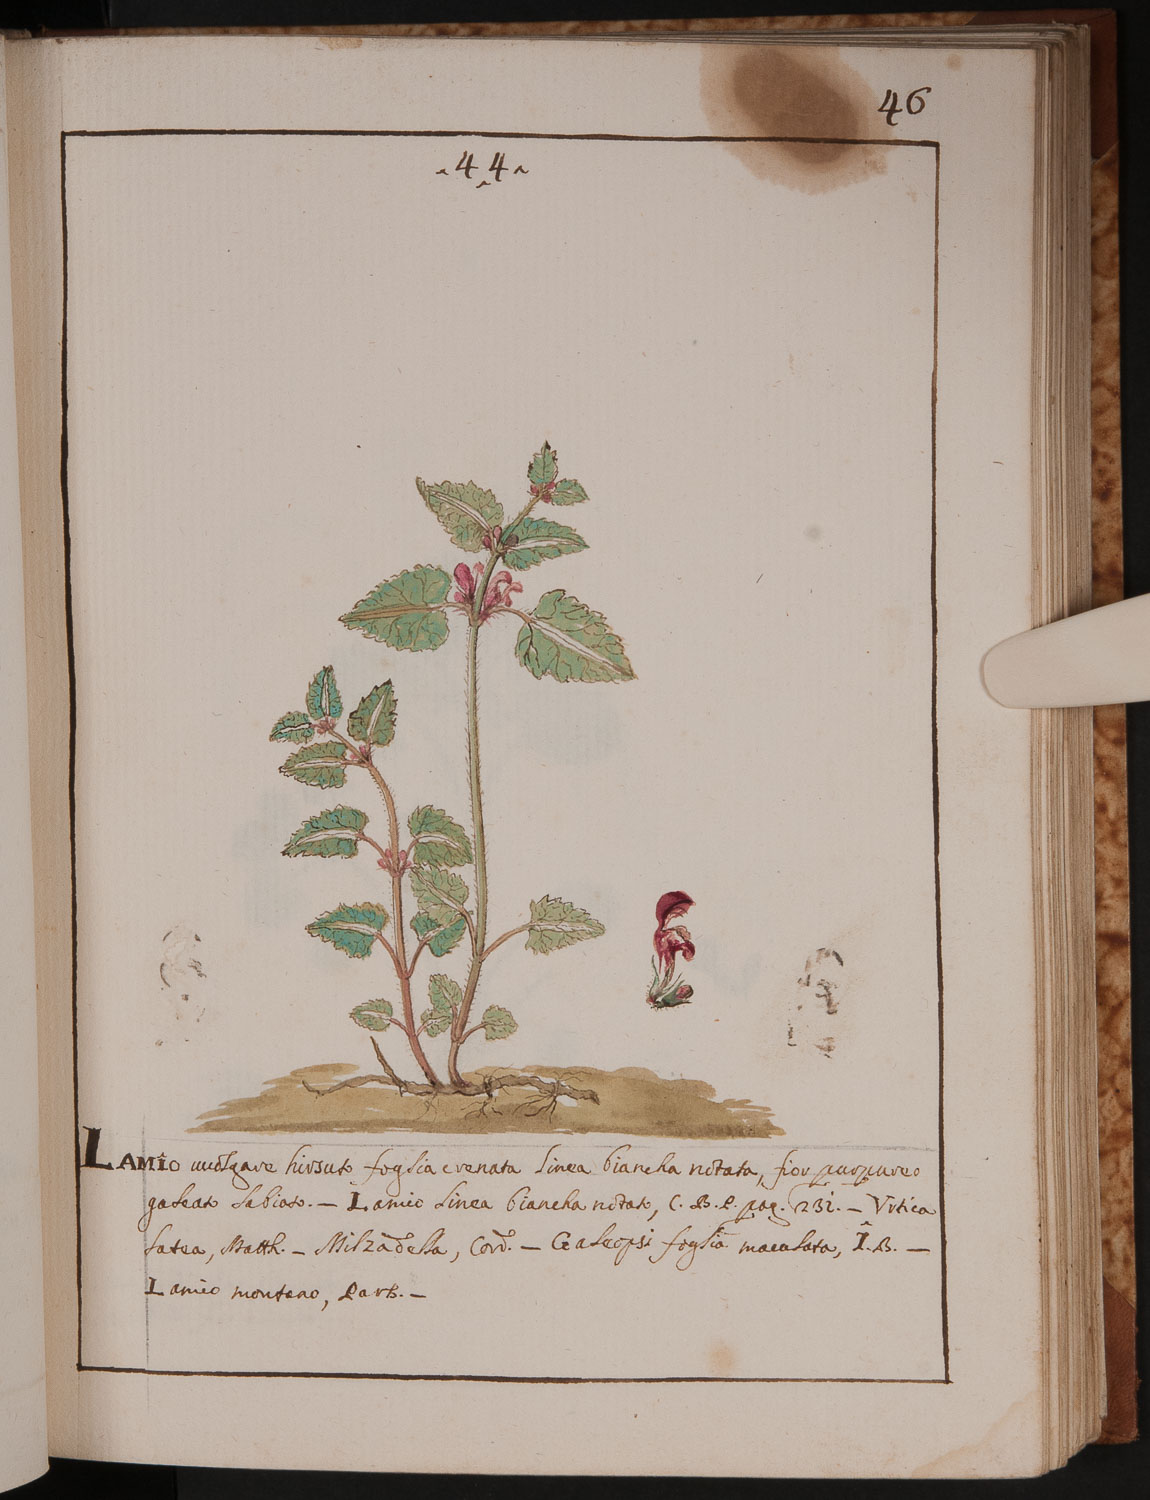 46
44
LAMIO uuolgare hirsuto foglia crenata linea biancha notata, fior purpureo
galeato labiato. – Lamio linea biancha notato, C. B. P. pag. 231. – Vrtica
latea, Matth. – Milzadella, Cord. – Galeopsi foglia maculata, I. B. –
Lamio montano, Park. –